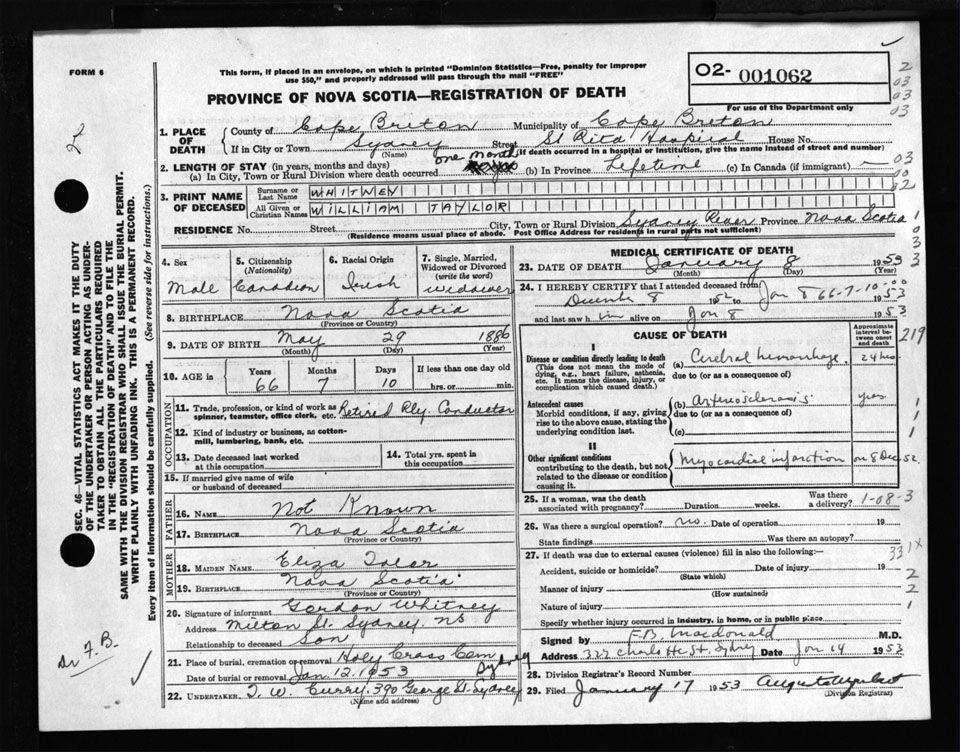 FORM 6
This form, if placed in an envelope, on which is printed "Dominion Statistics—Free, penalty for improper
use $50," and properly addressed will pass through the mail "FREE"
O2- 001062
For use of the Department only
PROVINCE OF NOVA SCOTIA—REGISTRATION OF DEATH
2
03
03
03
2
1. PLACE OF DEATH
County of Cape Breton Municipality of Cape Breton
If in City or Town Sydney Street St Rita Hospital House No.
(Name) (If death occurred in a hospital or institution, give the name instead of street and number)
2. LENGTH OF STAY (in years, months and days)
(a) In City, Town or Rural Division where death occurred one month (b) In Province Lifetime (c) In Canada (if immigrant) –
03
00
02
3. PRINT NAME OF DECEASED
Surname or Last Name WHITNEY
All Given or Christian Names WILLIAM TAYLOR
RESIDENCE No. Street City, Town or Rural Division Sydney River Province Nova Scotia
(Residence means usual place of abode. Post Office Address for residents in rural parts not sufficient)
4. Sex
Male
5. Citizenship
(Nationality)
Canadian
6. Racial Origin
Irish
7. Single, Married,
Widowed or Divorced
(write the word)
widower
8. BIRTHPLACE Nova Scotia
(Province or Country)
9. DATE OF BIRTH May 29 1886
(Month) (Day) (Year)
10. AGE in
Years Months Days If less than one day
66 7 10 hrs. or min.
OCCUPATION
11. Trade, profession, or kind of work as Retired Rly. Conductor
spinner, teamster, office clerk, etc.
12. Kind of industry or business, as cotton-
mill, lumbering, bank, etc.
13. Date deceased last worked
at this occupation
14. Total yrs. spent in
this occupation
15. If married give name of wife
or husband of deceased
FATHER
16. NAME Not Known
17. BIRTHPLACE Nova Scotia
(Province or Country)
MOTHER
18. MAIDEN NAME Eliza
19. BIRTHPLACE Nova Scotia
(Province or Country)
20. Signature of informant Gordon Whitney
Address Milton St. Sydney. NS
Relationship to deceased Son
21. Place of burial, cremation or removal Holy Cross Cem Sydney
Date of burial or removal Jan. 12. 1953
22. UNDERTAKER T. W. Curry. 390 George St. Sydney
(Name and address)
MEDICAL CERTIFICATE OF DEATH
23. DATE OF DEATH January 8 1953
(Month) (Day) (Year)
24. I HEREBY CERTIFY that I attended deceased from
8 1952 to Jan 8 1953
66-7-10
and last saw him alive on Jan 8 1953
CAUSE OF DEATH
Approximate
interval be-
tween onset
and death
219
I
Disease or condition directly leading to death
(This does not mean the mode of
dying, e.g., heart failure, asthenia,
etc. It means the disease, injury, or
complication which caused death.)
(a) Cerebral hemorrhage. 24 hrs
due to (or as a consequence of)
Antecedent causes
Morbid conditions, if any, giving
rise to the above cause, stating the
underlying condition last.
(b) Arteriosclerosis yrs
due to (or as a consequence of)
(c)
II
Other significant conditions
contributing to the death, but not
related to the disease or condition
causing it.
Myocardial infarction on 8 Dec. 52
25. If a woman, was the death
associated with pregnancy? Duration weeks. Was there
a delivery?
1-08-3
26. Was there a surgical operation? no. Date of operation 19
State findings Was there an autopsy?
331X
27. If death was due to external causes (violence) fill in also the following:—
Accident, suicide or homicide? Date of injury 19
(State which)
Manner of injury
(How sustained)
Nature of injury
Specify whether injury occurred in industry, in home, or in public place
Signed by F.B. MacDonald M.D.
Address 322 Charlotte St, Sydney Date Jan 14 1953
28. Division Registrar's Record Number
29. Filed January 17 1953
(Division Registrar)
SEC. 46—VITAL STATISTICS ACT MAKES IT THE DUTY
OF THE UNDERTAKER OR PERSON ACTING AS UNDER-
TAKER TO OBTAIN ALL THE PARTICULARS REQUIRED
IN THE "REGISTRATION OF DEATH" AND TO FILE THE
SAME WITH THE DIVISION REGISTRAR WHO SHALL ISSUE THE BURIAL PERMIT.
WRITE PLAINLY WITH UNFADING INK. THIS IS A PERMANENT RECORD.
Every item of information should be carefully supplied. (See reverse side for instructions.)
Dr F. B.